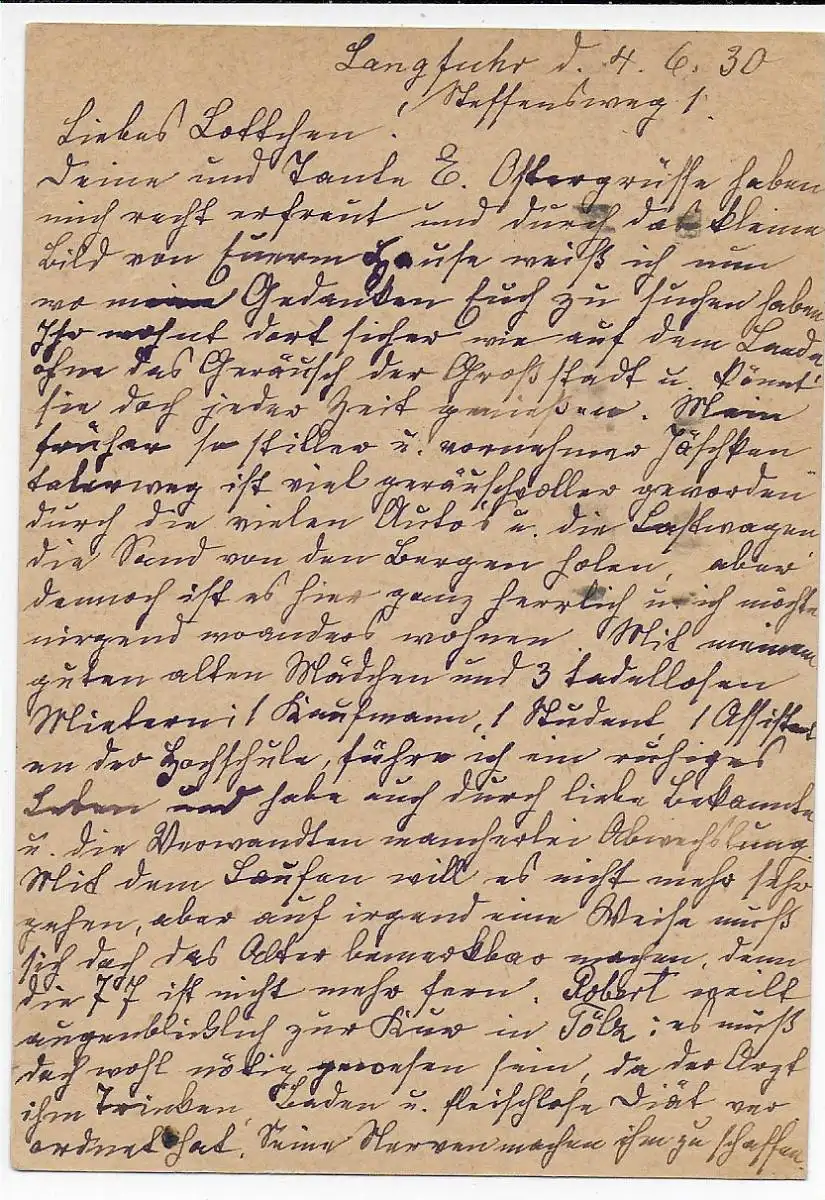 Langfuhr d. 4. 6. 30
Steffensweg 1.
Liebes Lottchen!
Deine und Tante E. Ostergrüsse haben
mich recht erfreut und durch das kleine
Bild von Euerm Hause weiß ich nun
wo meine Gedanken Euch zu suchen haben
Ihr wohnt dort sicher wie auf dem Lande
ohne das Geräusch der Großstadt u. könnt
sie doch jeder Zeit genießen. Mein
früher so stiller u. vornehmer Jäschken
talerweg ist viel geräuschvoller geworden
durch die vielen Auto's u. die Lastwagen
die Sand von den Bergen holen, aber
dennoch ist es hier ganz herrlich u. ich möchte
nirgend woanders wohnen. Mit meinem
guten alten Mädchen und 3 tadellosen
Mietern: 1 Kaufmann, 1 Student, 1 Assistent
an der Hochschule, führe ich ein ruhiges
Leben und habe auch durch liebe Bekannte
u. die Verwandten mancherlei Abwechslung.
Mit dem Laufen will es nicht mehr sehr
gehen, aber auf irgend eine Weise muß
sich doch das Alter bemerkbar machen, denn
die 77 ist nicht mehr fern. Robert weilt
augenblicklich zur Kur in Tölz: es muß
doch wohl nötig gewesen sein, da der Arzt
ihm Trinken, Baden u. fleischlose Diät ver
ordnet hat. Seine Nerven machen ihm zu schaffen.